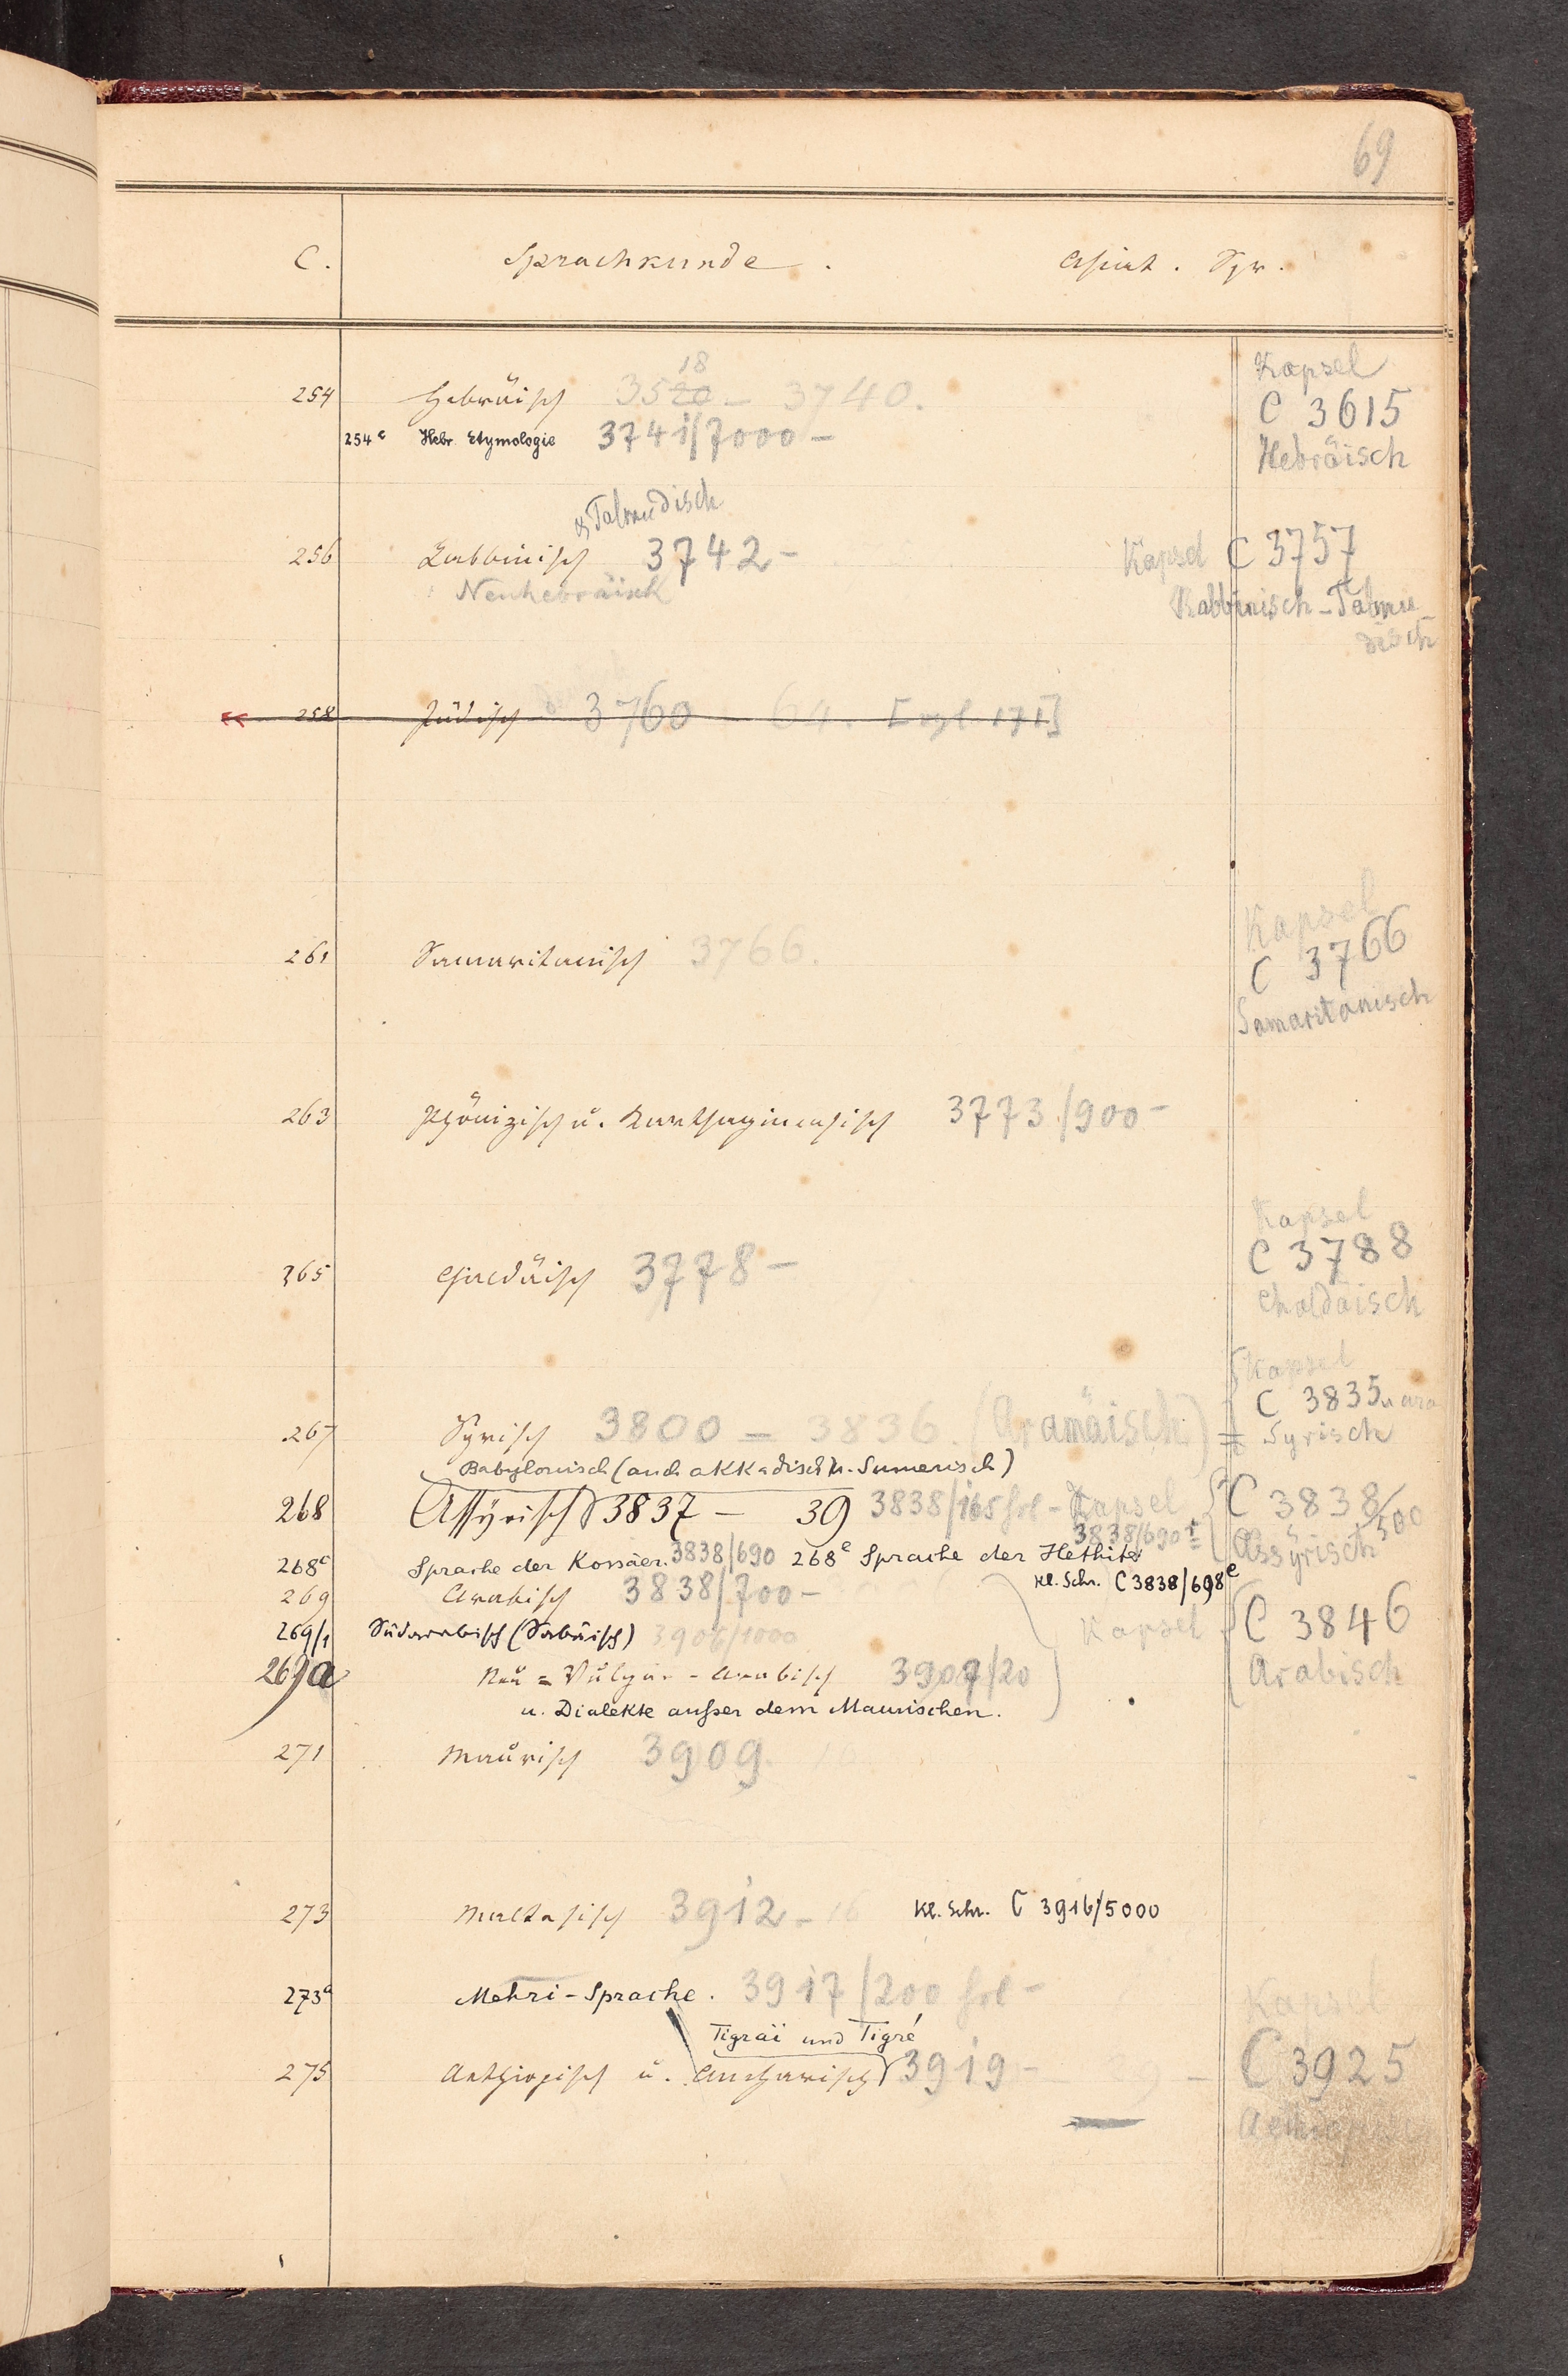 69
C. Sprachkunde. Asiat. Spr.
254 Hebräisch 3520 18 - 3740. Kapsel
C 3615
254c Hebr. Etymologie 3741/7000 - Hebräisch
& Talmudisch
256 Rabbinisch 3742 - Kapsel C 3757
Neuhebräisch Rabbinisch-Talmu-
disch
258 Jüdisch deutsch 3760 64.
Kapsel
261 Samaritanisch 3766. C 3766
Samaritanisch
263 Phönizisch u. Karthaginensisch 3773/900 -
Kapsel
365 Chaldäisch 3778 - C 3788
Chaldäisch
Kapsel
C 3835
267 Syrisch 3800 - 3836. (Aramäisch) = Syrisch
Babylonisch (auch akkadisch u. Sumerisch)
268 Assyrisch 3837 - 39 3838/165 fol - Kapsel C 3838/500
3838/690 Assyrisch
268c Sprache der Kossäer. 3838/690 268e Sprache der Hethiter
Kl. Schr. C 3838/698e
269 Arabisch 3838/700 -
269/1 Südarabisch (Sabäisch) 3906/1000 Kapsel C 3846
269a Neu = Vulgär - Arabisch 3907/20 Arabisch
u. Dialekte außer dem Maurischen.
271 Maurisch 3909.
273 Maltesisch 3912 - 16 Kl. Schr. C 3916/5000
273a Mehri-Sprache. 3917/200 fol - Kapsel
Tigraï und Tigré
275 Aethiopisch u. Amharisch 3919 - C 3925